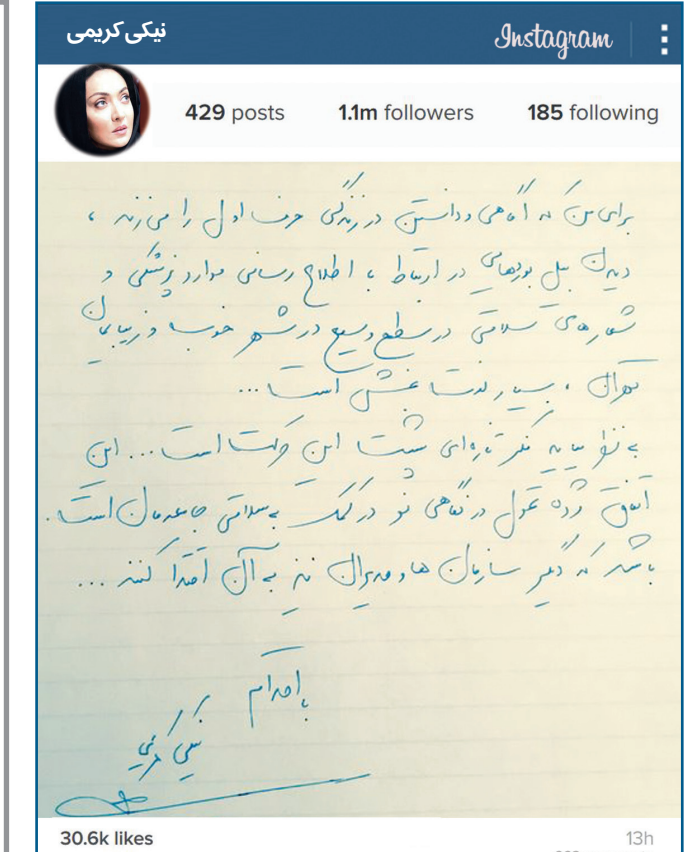 نیکی کریمی
Instagram
429 posts 1.1m followers 185 following
برای من که آگاهی و دانستن در زندگی حرف اول را می‌زند ،
دیدن بیل بوردهایی در ارتباط با اطلاع رسانی موارد پزشکی و
شعارهای سلامتی در سطح وسیع در شهر خوب و زیبایمان
تهران ، بسیار لذت بخش است ...
به نظر می‌یاید فکر تازه‌ای پشت این حرکت است ... این
اتفاق مژده تحول در نگاهی نو در کمک به سلامتی جامعه‌مان است .
باشد که دیگر سازمان ها و مدیران نیز به آن اقتدا کنند ...
با احترام
نیکی کریمی
30.6k likes 13h